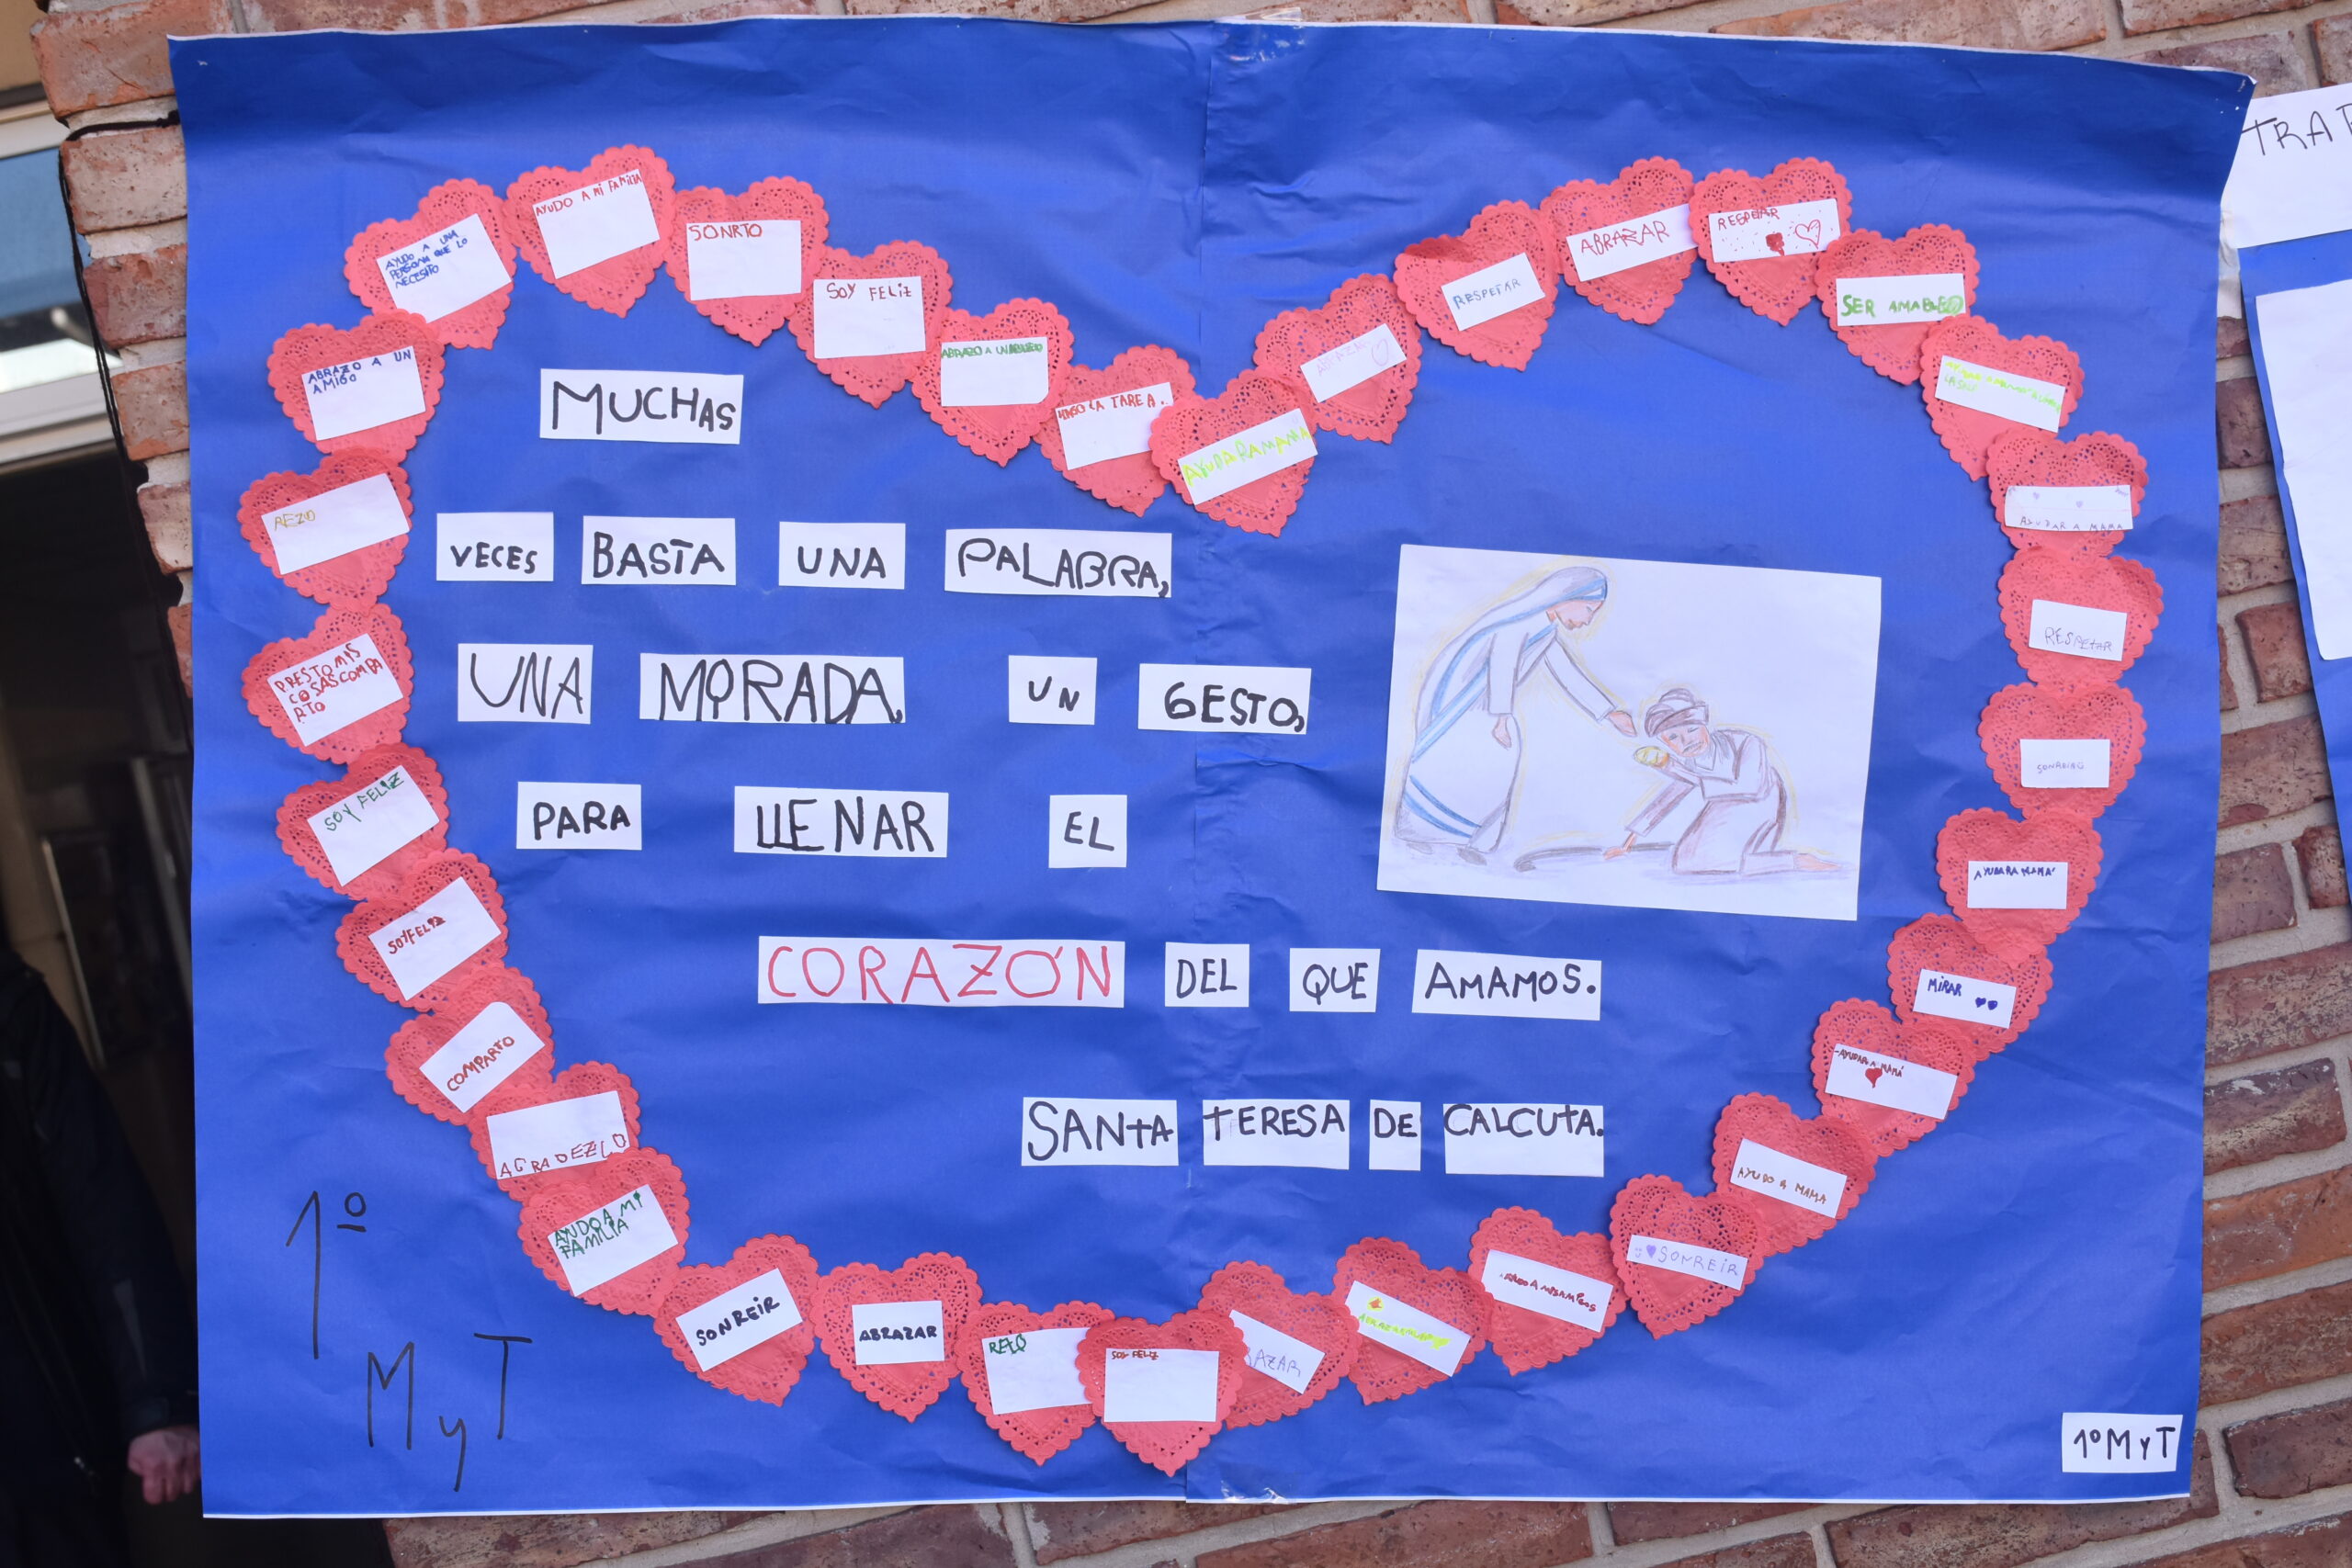 MUCHAS
VECES BASTA UNA PALABRA,
UNA MIRADA, UN GESTO,
PARA LLENAR EL
CORAZÓN DEL QUE AMAMOS.
SANTA TERESA DE CALCUTA.
AYUDO A UNA
PERSONA QUE LO
NECESITO
AYUDO A MI FAMILIA
SONRIO
SOY FELIZ
ABRAZO A UN ABUELO
HAGO LA TAREA.
AYUDAR A MAMÁ
RESPETAR
ABRAZAR
RESPETAR
SER AMABLE
AYUDAR A MAMA
RESPETAR
AYUDAR A MAMÁ
MIRAR
AYUDAR A MAMÁ
AYUDO A MAMA
SONREIR
AZAR
SOY FELIZ
REZO
ABRAZAR
SONREIR
FAMILIA
AGRADEZCO
COMPARTO
SOY FELIZ
SOY FELIZ
PRESTO MIS
COSAS COMPA
RTO
REZO
ABRAZO A UN
AMIGO
1º
M y T
1º M y T
TRA